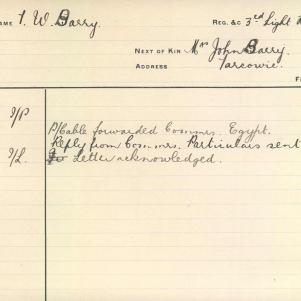 NAME T. W. Barry REG. &c 3rd Light
NEXT OF KIN Mrs John Barry,
ADDRESS Yarcowie.
P/Cable forwarded Commr. Egypt.
Reply from Commr. Particulars sent
Letter acknowledged.